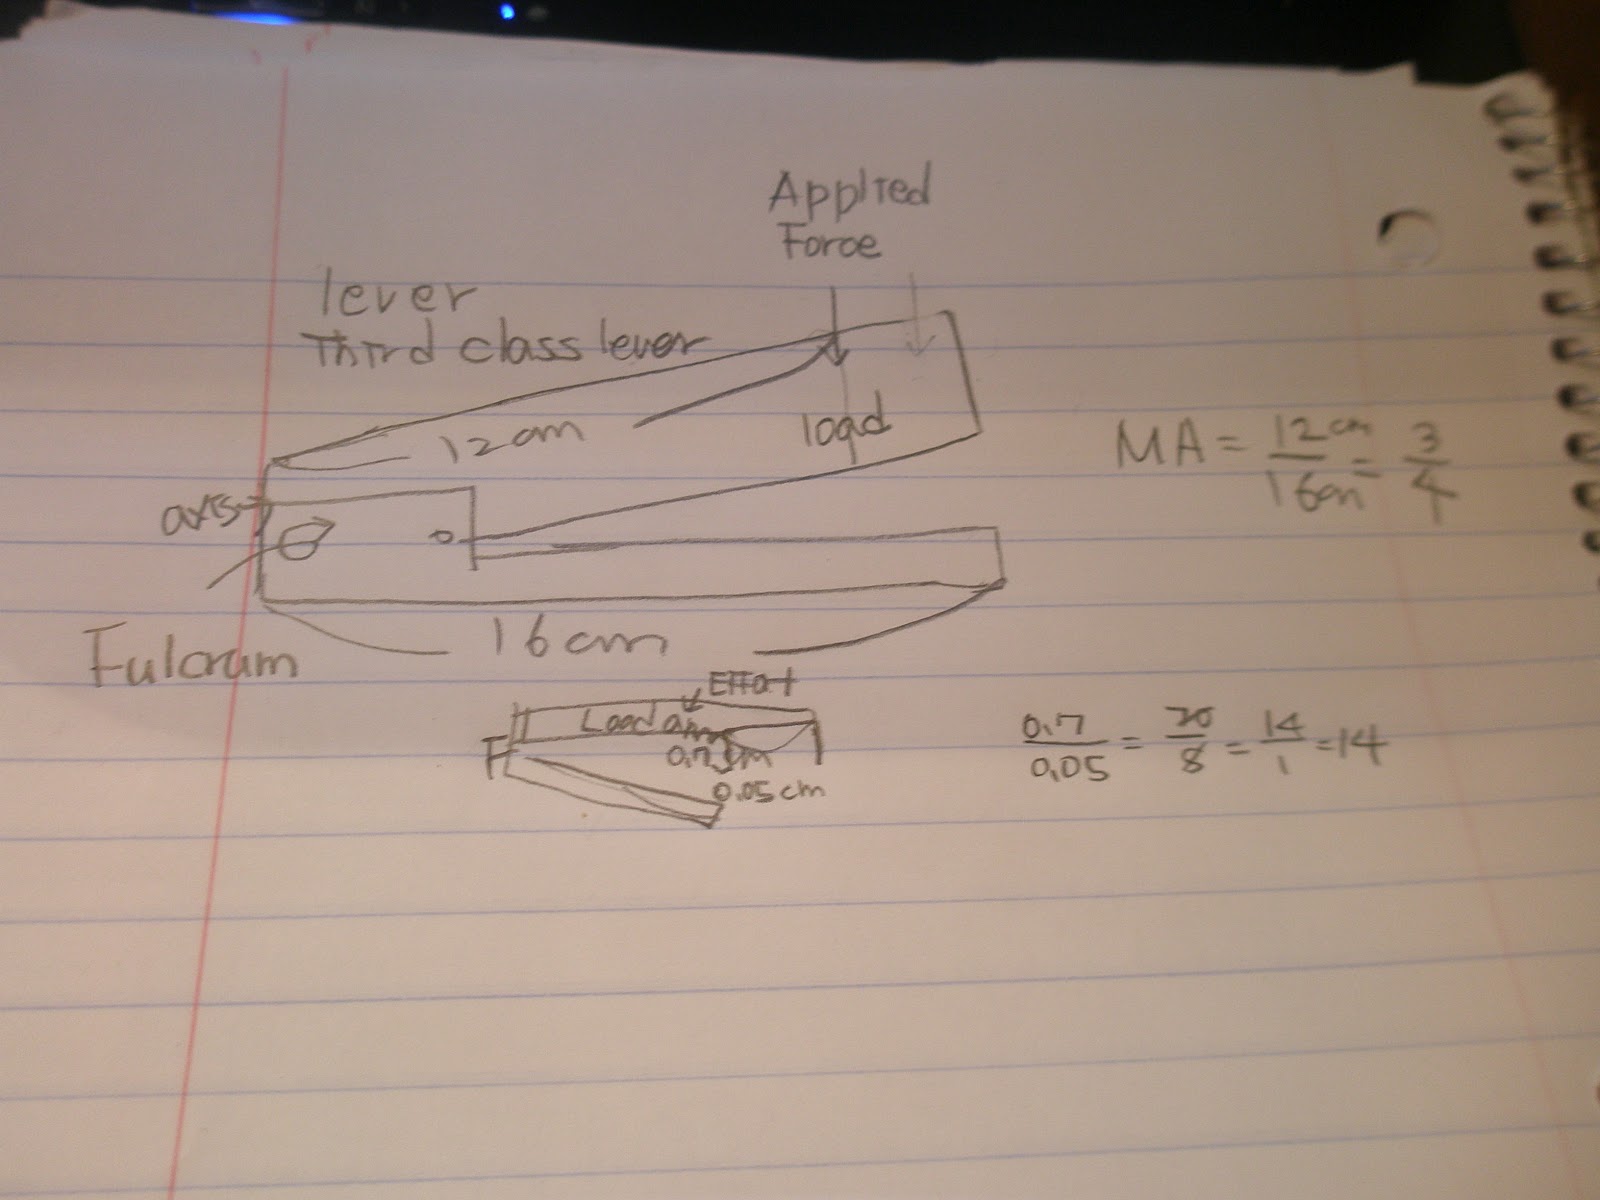 Applied
Force
lever
Third class lever
12cm
load
MA = 12cm / 16cm = 3/4
axis
16cm
Fulcrum
Effort
Load arm
F
0.7cm
0.05cm
0.7/0.05 = 70/8 = 14/1 = 14